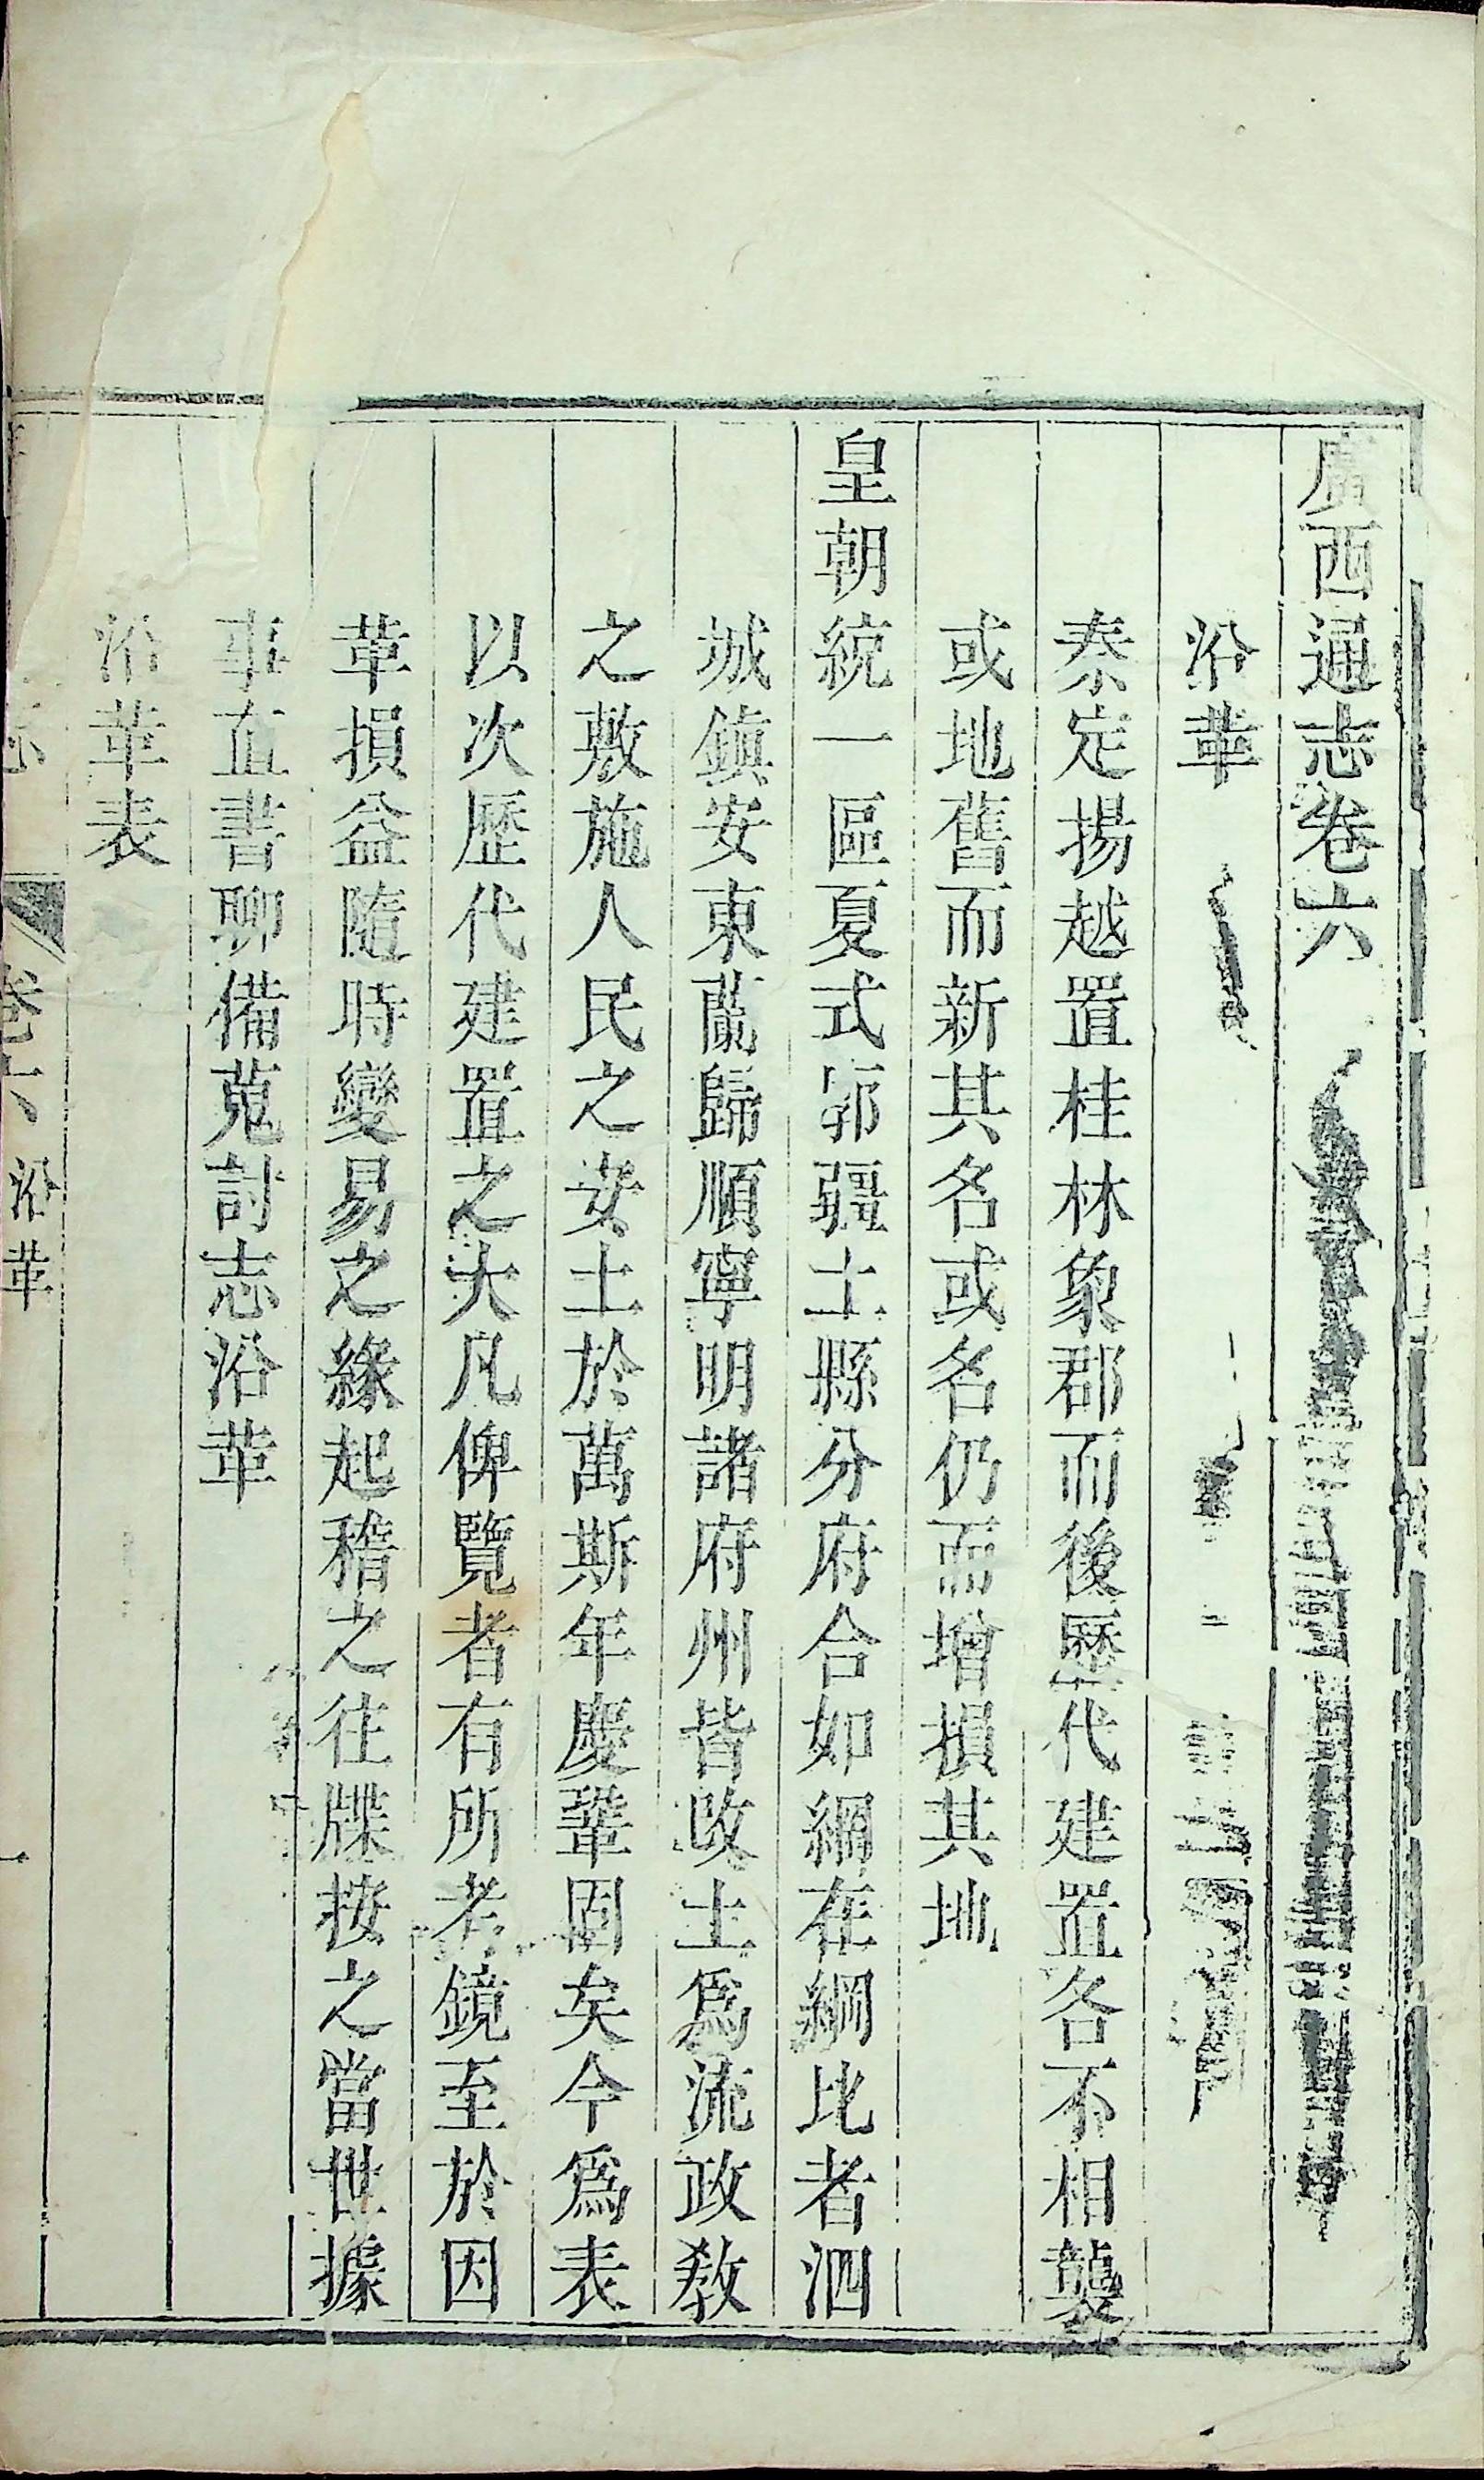 廣西通志卷六
沿革
秦定揚越置桂林象郡而後歷代建置各不相襲
或地舊而新其名或名仍而增損其地
皇朝統一區夏式郭疆土縣分府合如網在綱比者泗
城鎮安東蘭歸順寧明諸府州皆改土爲流政教
之敷施人民之安土於萬斯年慶鞏固矣今爲表
以次歷代建置之大凡俾覽者有所考鏡至於因
革損益隨時變易之緣起稽之往牒按之當世據
事直書聊備蒐討志沿革
沿革表
志
卷六
沿革
一